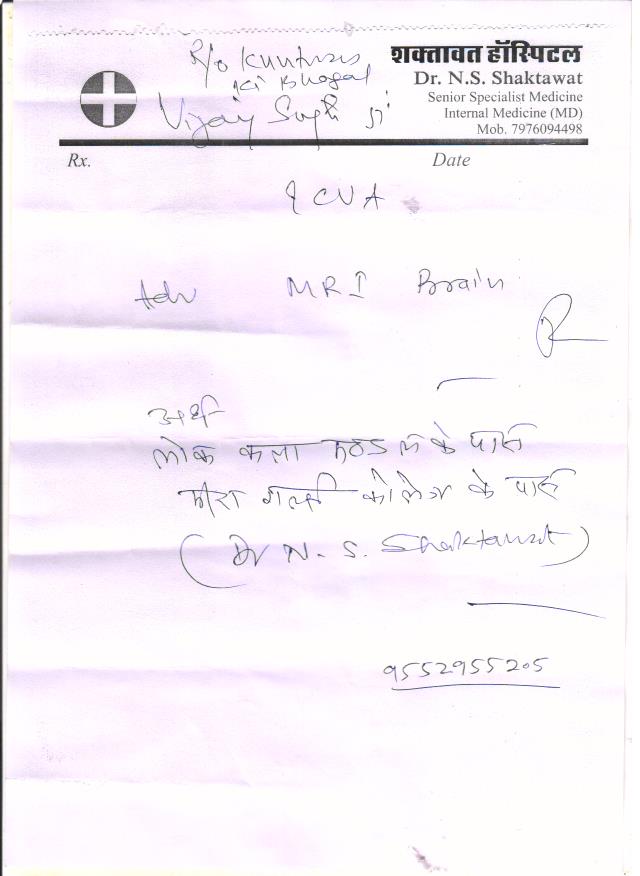 R/o Kunthas
ki Bhagal
Vijay Singh ji
शक्तावत हॉस्पिटल
Dr. N.S. Shaktawat
Senior Specialist Medicine
Internal Medicine (MD)
Mob. 7976094498
Rx. Date
? CVA
Adv MRI Brain
लोक कला मण्डल के पास
मीरा गर्ल्स कोलेज के पास
(Dr N. S. Shaktawat)
9552955205